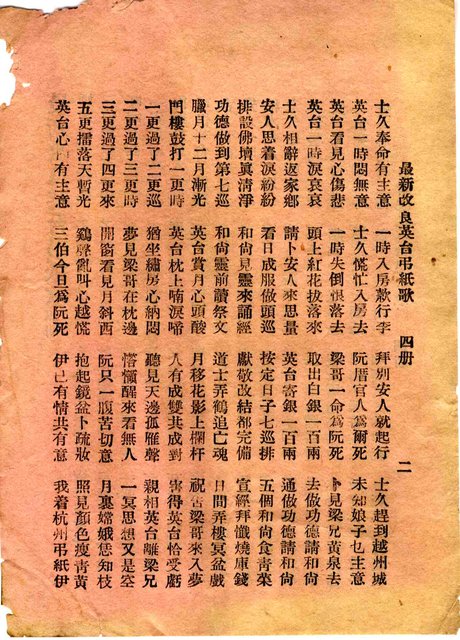 最新改良英台弔紙歌　四册　二
士久奉命有主意　一時入房款行李　拜別安人就起行　士久趕到越州城
英台一時悶無意　士久慌忙入房去　阮厝官人為爾死　未知娘子乜主意
英台看見心傷悲　一時失倒恨落去　梁哥一命為阮死　卜見梁兄黃泉去
英台一時淚哀哀　頭上紅花拔落來　取出白銀一百兩　去做功德請和尙
士久相辭返家鄉　請卜安人來思量　英台寄銀一百兩　通做功德請和尙
安人思着淚紛紛　看日成服做頭巡　按定日子七巡排　五個和尙食青菜
排設佛壇眞清淨　和尙見靈來誦經　獻敬改結都完備　宣經拜懺燒庫錢
功德做到第七巡　和尙靈前讀祭文　道士弄鶴追亡魂　日間弄樓冥盆戲
臘月十二月漸光　英台賞月心頭酸　月移花影上欄杆　祝告梁哥來入夢
門樓鼓打一更時　英台枕上喃淚啼　人有成雙共成對　害得英台恰受虧
一更過了二更巡　猶坐繡房心納悶　聽見天邊孤雁聲　親相英台離梁兄
二更過了三更時　夢見梁哥在枕邊　㦬懶醒來看無人　一冥思想又是空
三更過了四更來　開窗看見月斜西　阮只一腹苦切意　月裏嫦娥恁知枝
五更擂落天暫光　鷄聲亂叫心越慌　抱起鏡盆卜疏妝　照見顏色瘦靑黃
英台心中有主意　三伯今旦為阮死　伊已有情共有意　我着杭州弔紙伊